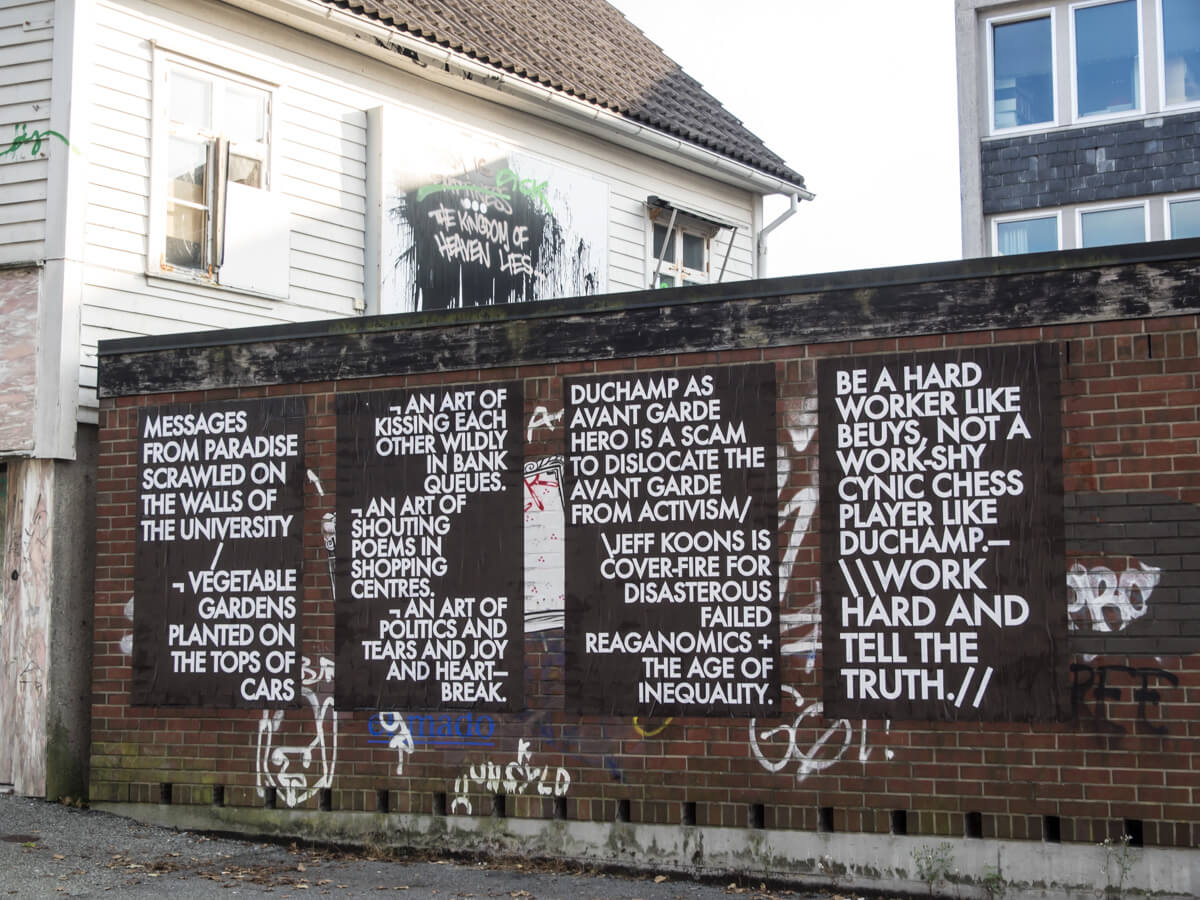 SICK
THE KINGDOM OF
HEAVEN LIES...
MESSAGES
FROM PARADISE
SCRAWLED ON
THE WALLS OF
THE UNIVERSITY
/
¬ VEGETABLE
GARDENS
PLANTED ON
THE TOPS OF
CARS
¬ AN ART OF
KISSING EACH
OTHER WILDLY
IN BANK
QUEUES.
¬ AN ART OF
SHOUTING
POEMS IN
SHOPPING
CENTRES.
¬ AN ART OF
POLITICS AND
TEARS AND JOY
AND HEART—
BREAK.
DUCHAMP AS
AVANT GARDE
HERO IS A SCAM
TO DISLOCATE THE
AVANT GARDE
FROM ACTIVISM/
\JEFF KOONS IS
COVER-FIRE FOR
DISASTEROUS
FAILED
REAGANOMICS +
THE AGE OF
INEQUALITY.
BE A HARD
WORKER LIKE
BEUYS, NOT A
WORK-SHY
CYNIC CHESS
PLAYER LIKE
DUCHAMP.—
\\WORK
HARD AND
TELL THE
TRUTH.//